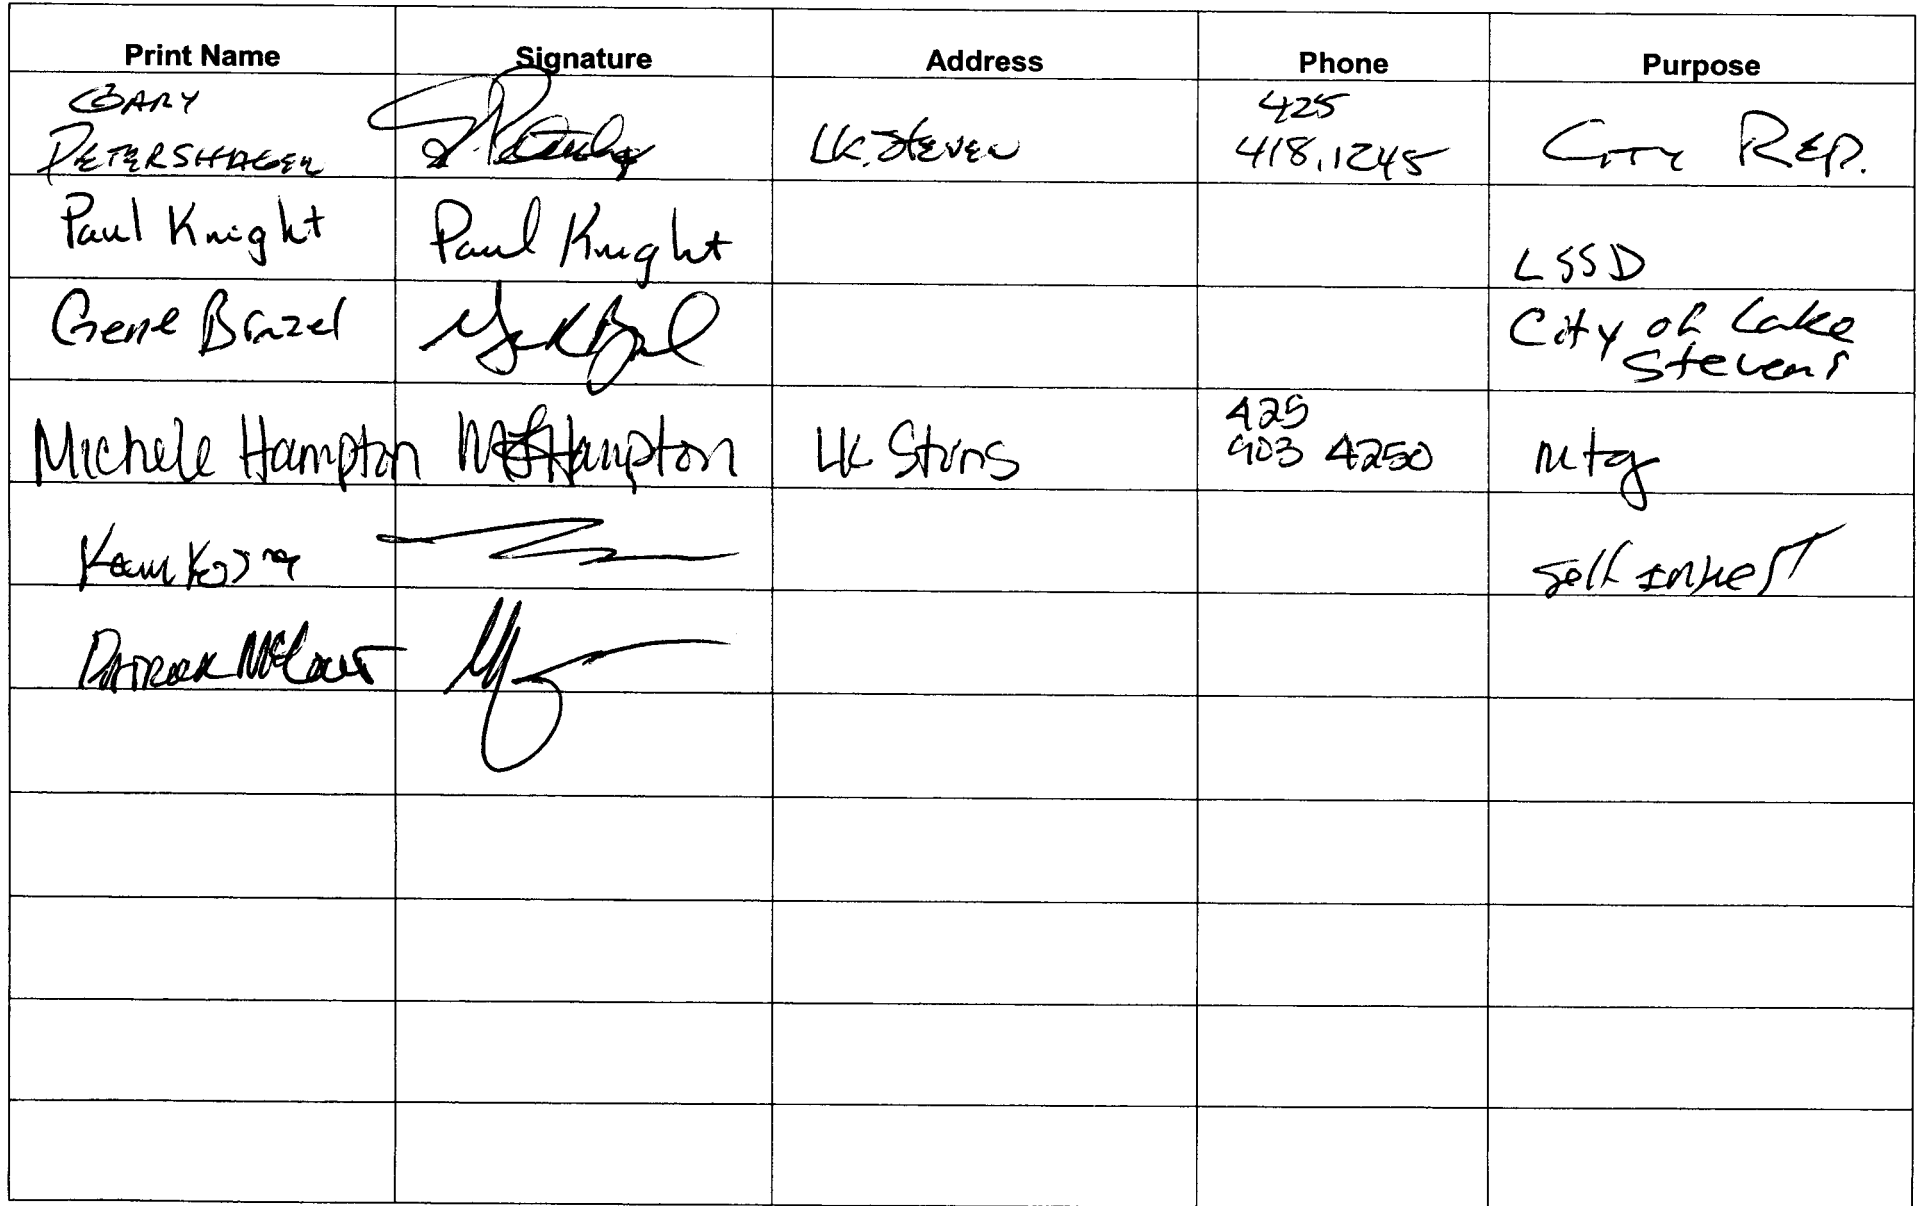 Print Name Signature Address Phone Purpose
GARY
PETERSHAGEN LK. Steven 425
418.1245 CITY REP.
Paul Knight Paul Knight LSSD
Gene Brazel City of Lake
Stevens
Michele Hampton M Hampton LK Stvns 425
903 4250 mtg
Self
Patrick